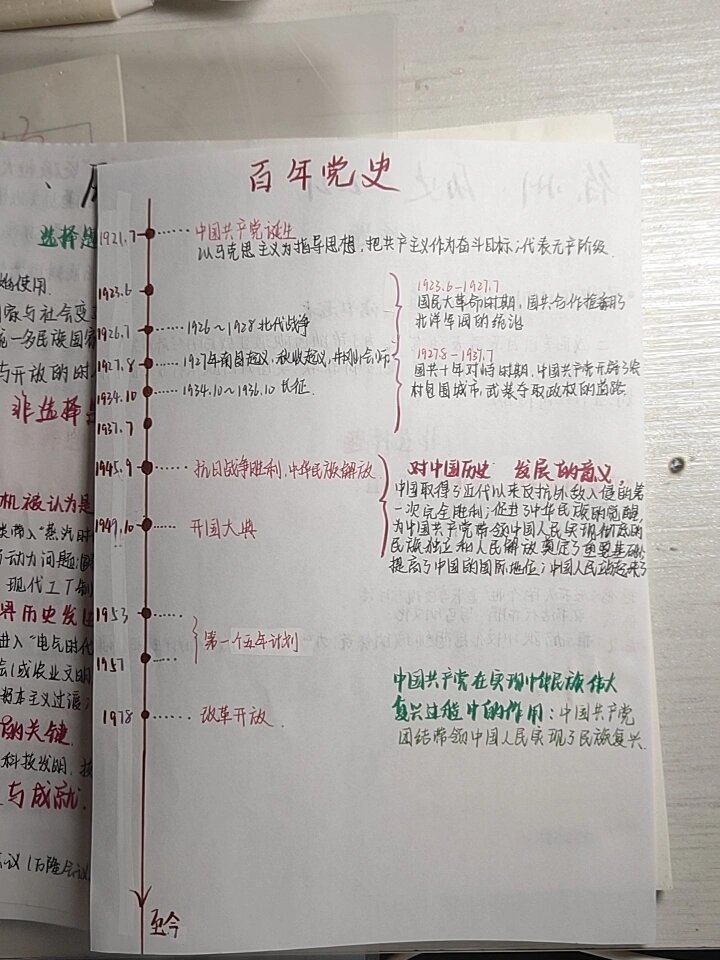 百年党史
选择题
始使用.
国家与社会变
统一多民族国家
与开放的时
非选择
机被认为是
类带入“蒸汽时
动力问题
现代工厂制
界历史发
进入“电气时代
会(或农业文明
资本主义过渡
的关键
科技发明.
与成就.
会议(万隆会议
1921.7 中国共产党诞生
以马克思主义为指导思想,把共产主义作为奋斗目标;代表无产阶级.
1923.6
1926.7 1926~1928北伐战争
1927.8 1927年南昌起义,秋收起义,井冈山会师
1934.10 1934.10~1936.10 长征.
1937.7
1923.6-1927.7
国民大革命时期,国共合作推翻了
北洋军阀的统治
1927.8-1937.7
国共十年对峙时期,中国共产党开辟了农
村包围城市,武装夺取政权的道路.
1945.9 抗日战争胜利,中华民族解放.
1949.10 开国大典
对中国历史 发展的意义
中国取得了近代以来反抗外敌入侵的第
一次完全胜利;促进了中华民族的觉醒,
为中国共产党带领中国人民实现彻底的
民族独立和人民解放奠定了重要基础;
提高了中国的国际地位;中国人民站起来了
1953
第一个五年计划
1957
1978 改革开放.
中国共产党在实现中华民族伟大
复兴过程中的作用:中国共产党
团结带领中国人民实现了民族复兴.
至今